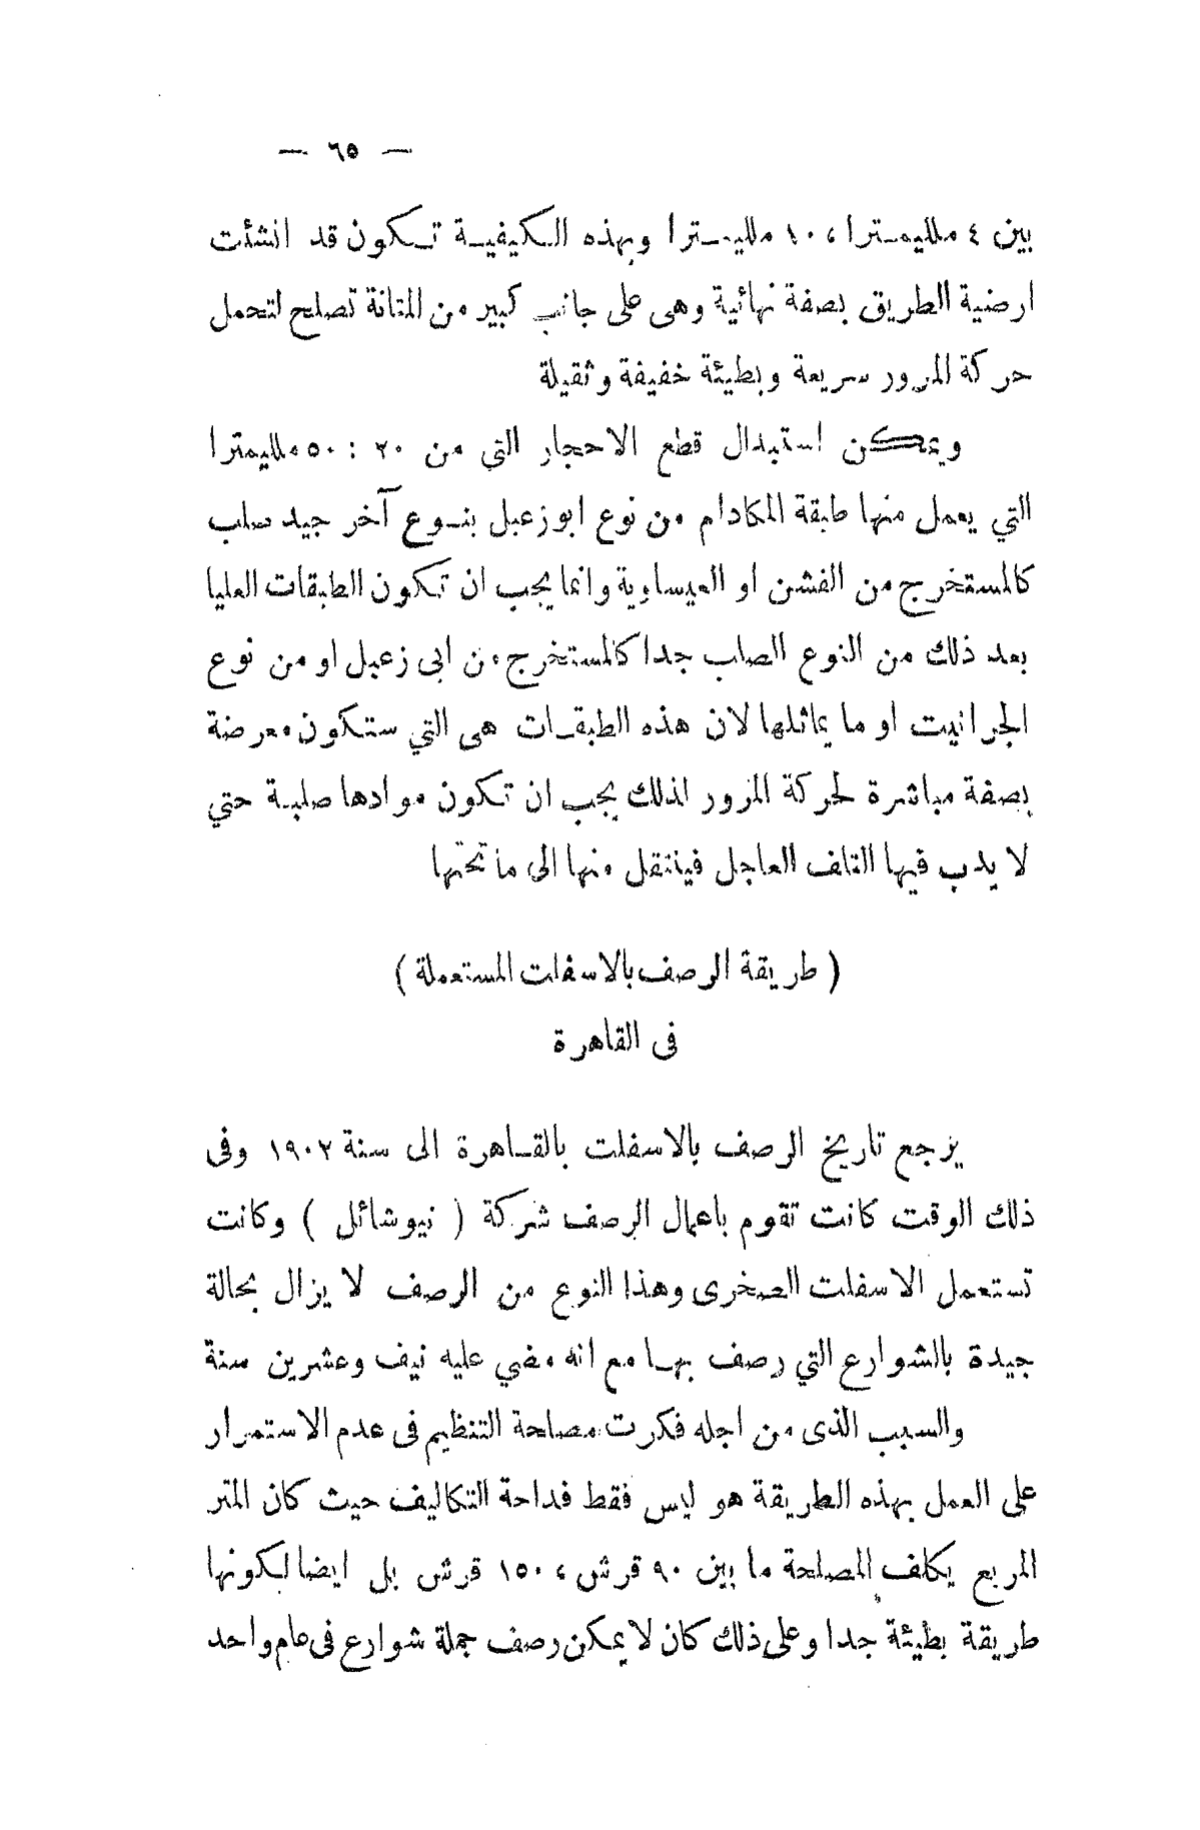 — ٦٥ —
بين ٤ ملليمترا، ١٠ ملليمترا وبهذه الكيفية تكون قد انشئت
ارضية الطريق بصفة نهائية وهى على جانب كبير من المتانة تصلح لتحمل
حركة المرور سريعة وبطيئة خفيفة وثقيلة
ويمكن استبدال قطع الاحجار التي من ٢٠ : ٥٠ ملليمترا
التي يعمل منها طبقة المكادام من نوع ابوزعبل بنوع آخر جيد صلب
كالمستخرج من الفشن او العيساوية وانما يجب ان تكون الطبقات العليا
بعد ذلك من النوع الصلب جدا كالمستخرج من ابى زعبل او من نوع
الجرانيت او ما يماثلها لان هذه الطبقات هى التي ستكون معرضة
بصفة مباشرة لحركة المرور لذلك يجب ان تكون موادها صلبة حتي
لا يدب فيها التلف العاجل فينتقل منها الى ما تحتها
( طريقة الرصف بالاسفلت المستعملة )
فى القاهرة
يرجع تاريخ الرصف بالاسفلت بالقاهرة الى سنة ١٩٠٢ وفى
ذلك الوقت كانت تقوم باعمال الرصف شركة ( نيوشاتل ) وكانت
تستعمل الاسفلت الصخرى وهذا النوع من الرصف لا يزال بحالة
جيدة بالشوارع التي رصف بها مع انه مضي عليه نيف وعشرين سنة
والسبب الذى من اجله فكرت مصلحة التنظيم فى عدم الاستمرار
على العمل بهذه الطريقة هو ليس فقط فداحة التكاليف حيث كان المتر
المربع يكلف المصلحة ما بين ٩٠ قرش، ١٥٠ قرش بل ايضا لكونها
طريقة بطيئة جدا وعلى ذلك كان لا يمكن رصف جملة شوارع فى عام واحد